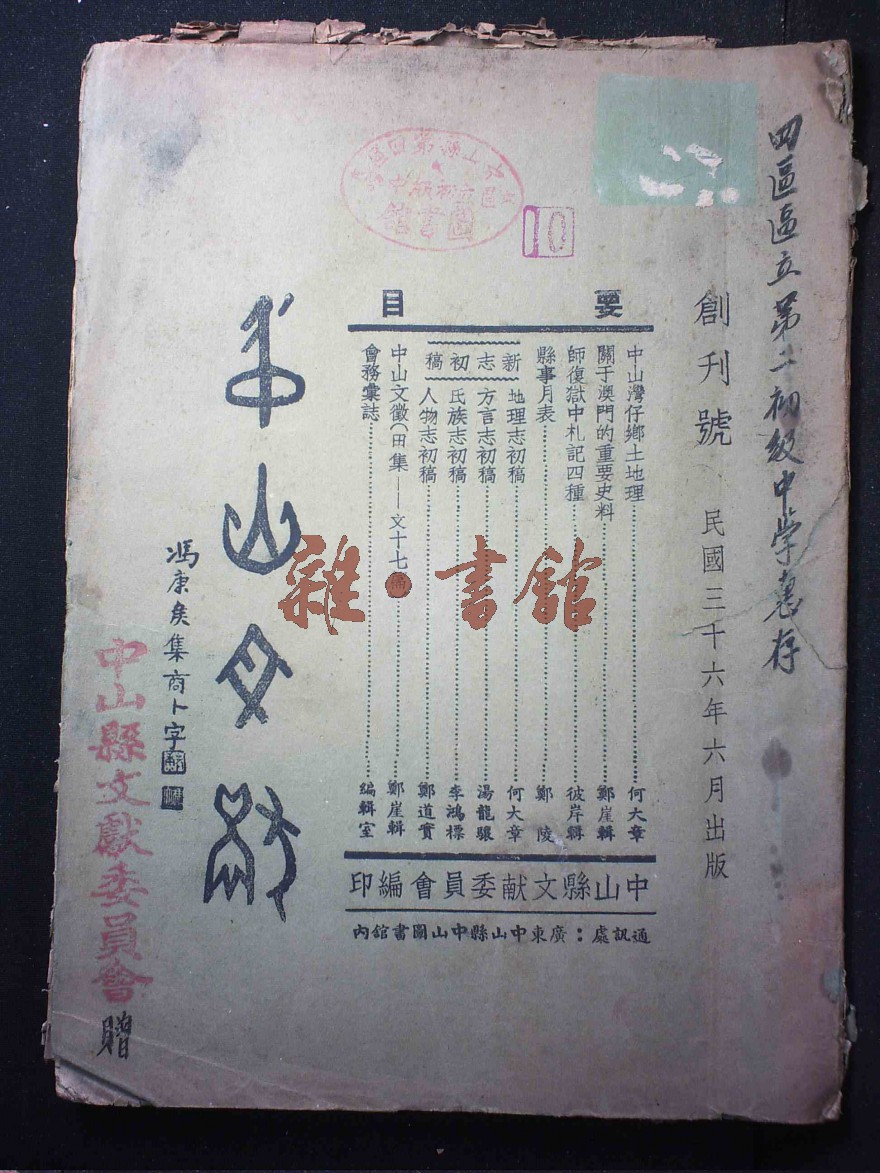 四區區立第二初級中学惠存
創刊號
民國三十六年六月出版
要目
中山灣仔鄉土地理 何大章
關于澳門的重要史料 鄭崖輯
師復獄中札記四種 彼岸輯
縣事月表 鄭陵
新志初稿
地理志初稿 何大章
方言志初稿 湯龍驤
氏族志初稿 李鴻標
人物志初稿 鄭道實
中山文徵(田集——文十七篇 鄭崖輯
會務彙誌 編輯室
中山縣文献委員會編印
通訊處：廣東中山縣中山圖書舘內
中山文獻
馮康矦集商卜字
中山縣文獻委員會
贈
圖書館
10
雜·書館